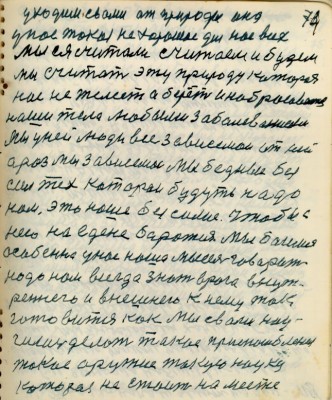 74
уходим свами от природы она
у нас такая нехорошая для нас всех
мы ся считали считаем и будем
мы считат эту природу которая
нас не жалеет а берёт и набрасывает
на наши тела любыми заболеваниями
мы у ней люди все зависемаи от ней
а раз мы зависемаи мы бедныи без
сил тех котораи будуть надо
нам, это наше бессилие. Чтобы с
него на едене баротися мы боимся
особенна у нас наша мысля говорить
надо нам всегда знать врага внут-
реннего и внешнего к нему тоже
готовится как мы свали нау-
чились делать такое приспособления
такое оружие такую науку
которая не стоить на месте